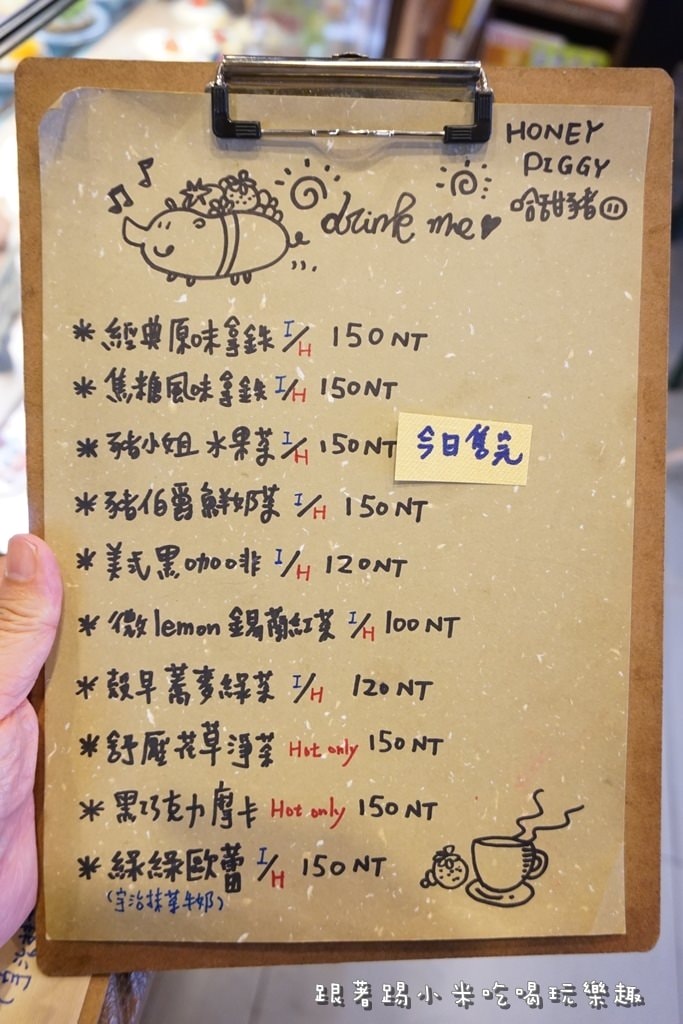 HONEY
PIGGY
哈甜豬
drink me
* 經典原味拿鉄 I/H 150NT
* 焦糖風味拿鉄 I/H 150NT
* 豬小姐 水果茶 I/H 150NT 今日售完
* 豬伯爵鮮奶茶 I/H 150NT
* 美式黑咖啡 I/H 120NT
* 微lemon錫蘭紅茶 I/H 100NT
* 穀早蕎麥綠茶 I/H 120NT
* 舒壓花草淨茶 Hot only 150NT
* 黑巧克力摩卡 Hot only 150NT
* 綠綠歐蕾 I/H 150NT
(宇治抹茶牛奶)
跟著踢小米吃喝玩樂趣